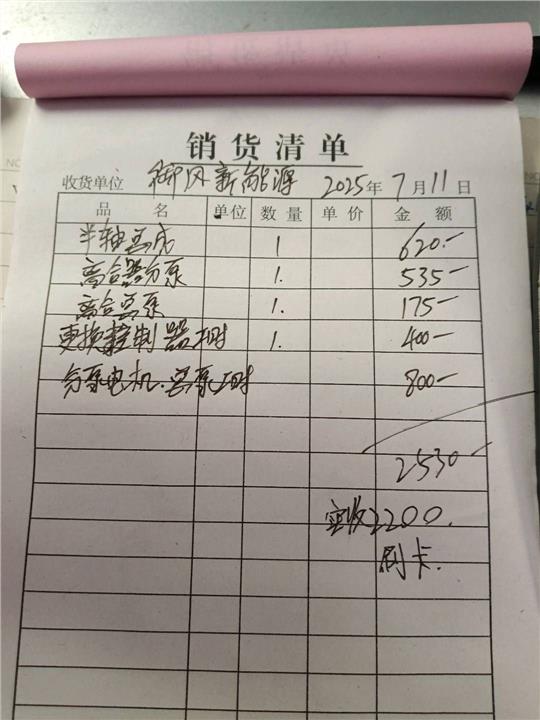 销货清单
收货单位 御风新能源 2025年7月11日
品名 单位 数量 单价 金额
半轴总成 1 620.-
离合器分泵 1. 535-
离合总泵 1. 175-
更换控制器工时 1. 400-
分泵电机.总泵工时 800-
2530
实收2200.
刷卡.